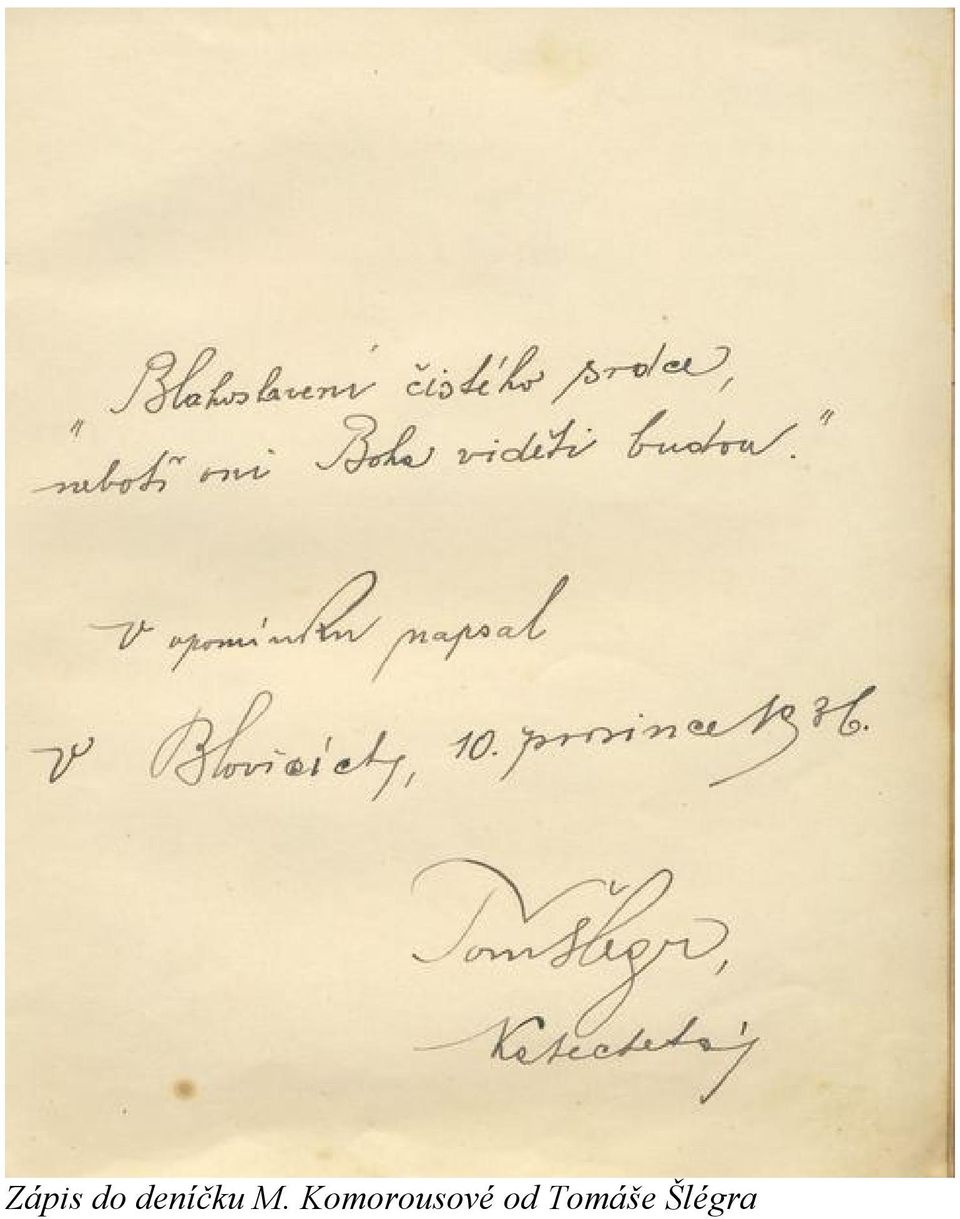 "Blahoslavení čistého srdce,
neboť oni Boha viděti budou."
V upomínku napsal
V Blovicích, 10. prosince 1936.
Tom Šlégr,
Zápis do deníčku M. Komorousové od Tomáše Šlégra